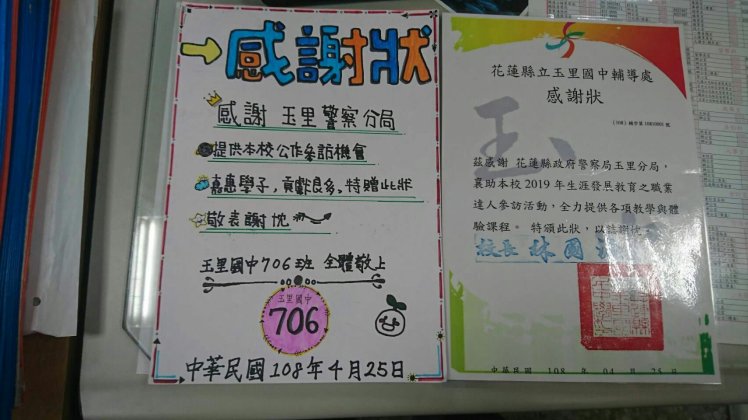 感謝狀
感謝 玉里警察分局
提供本校公作參訪機會
嘉惠學子，貢獻良多。特贈此狀
敬表謝忱
玉里國中706班 全體敬上
玉里國中
706
中華民國108年4月25日
花蓮縣立玉里國中輔導處
感謝狀
玉
茲感謝 花蓮縣政府警察局玉里分局，
襄助本校2019年生涯發展教育之職業
達人參訪活動，全力提供各項教學與體
驗課程。 特頒此狀，以誌謝忱
校長 林國
中華民國 108 年 04 月 25 日